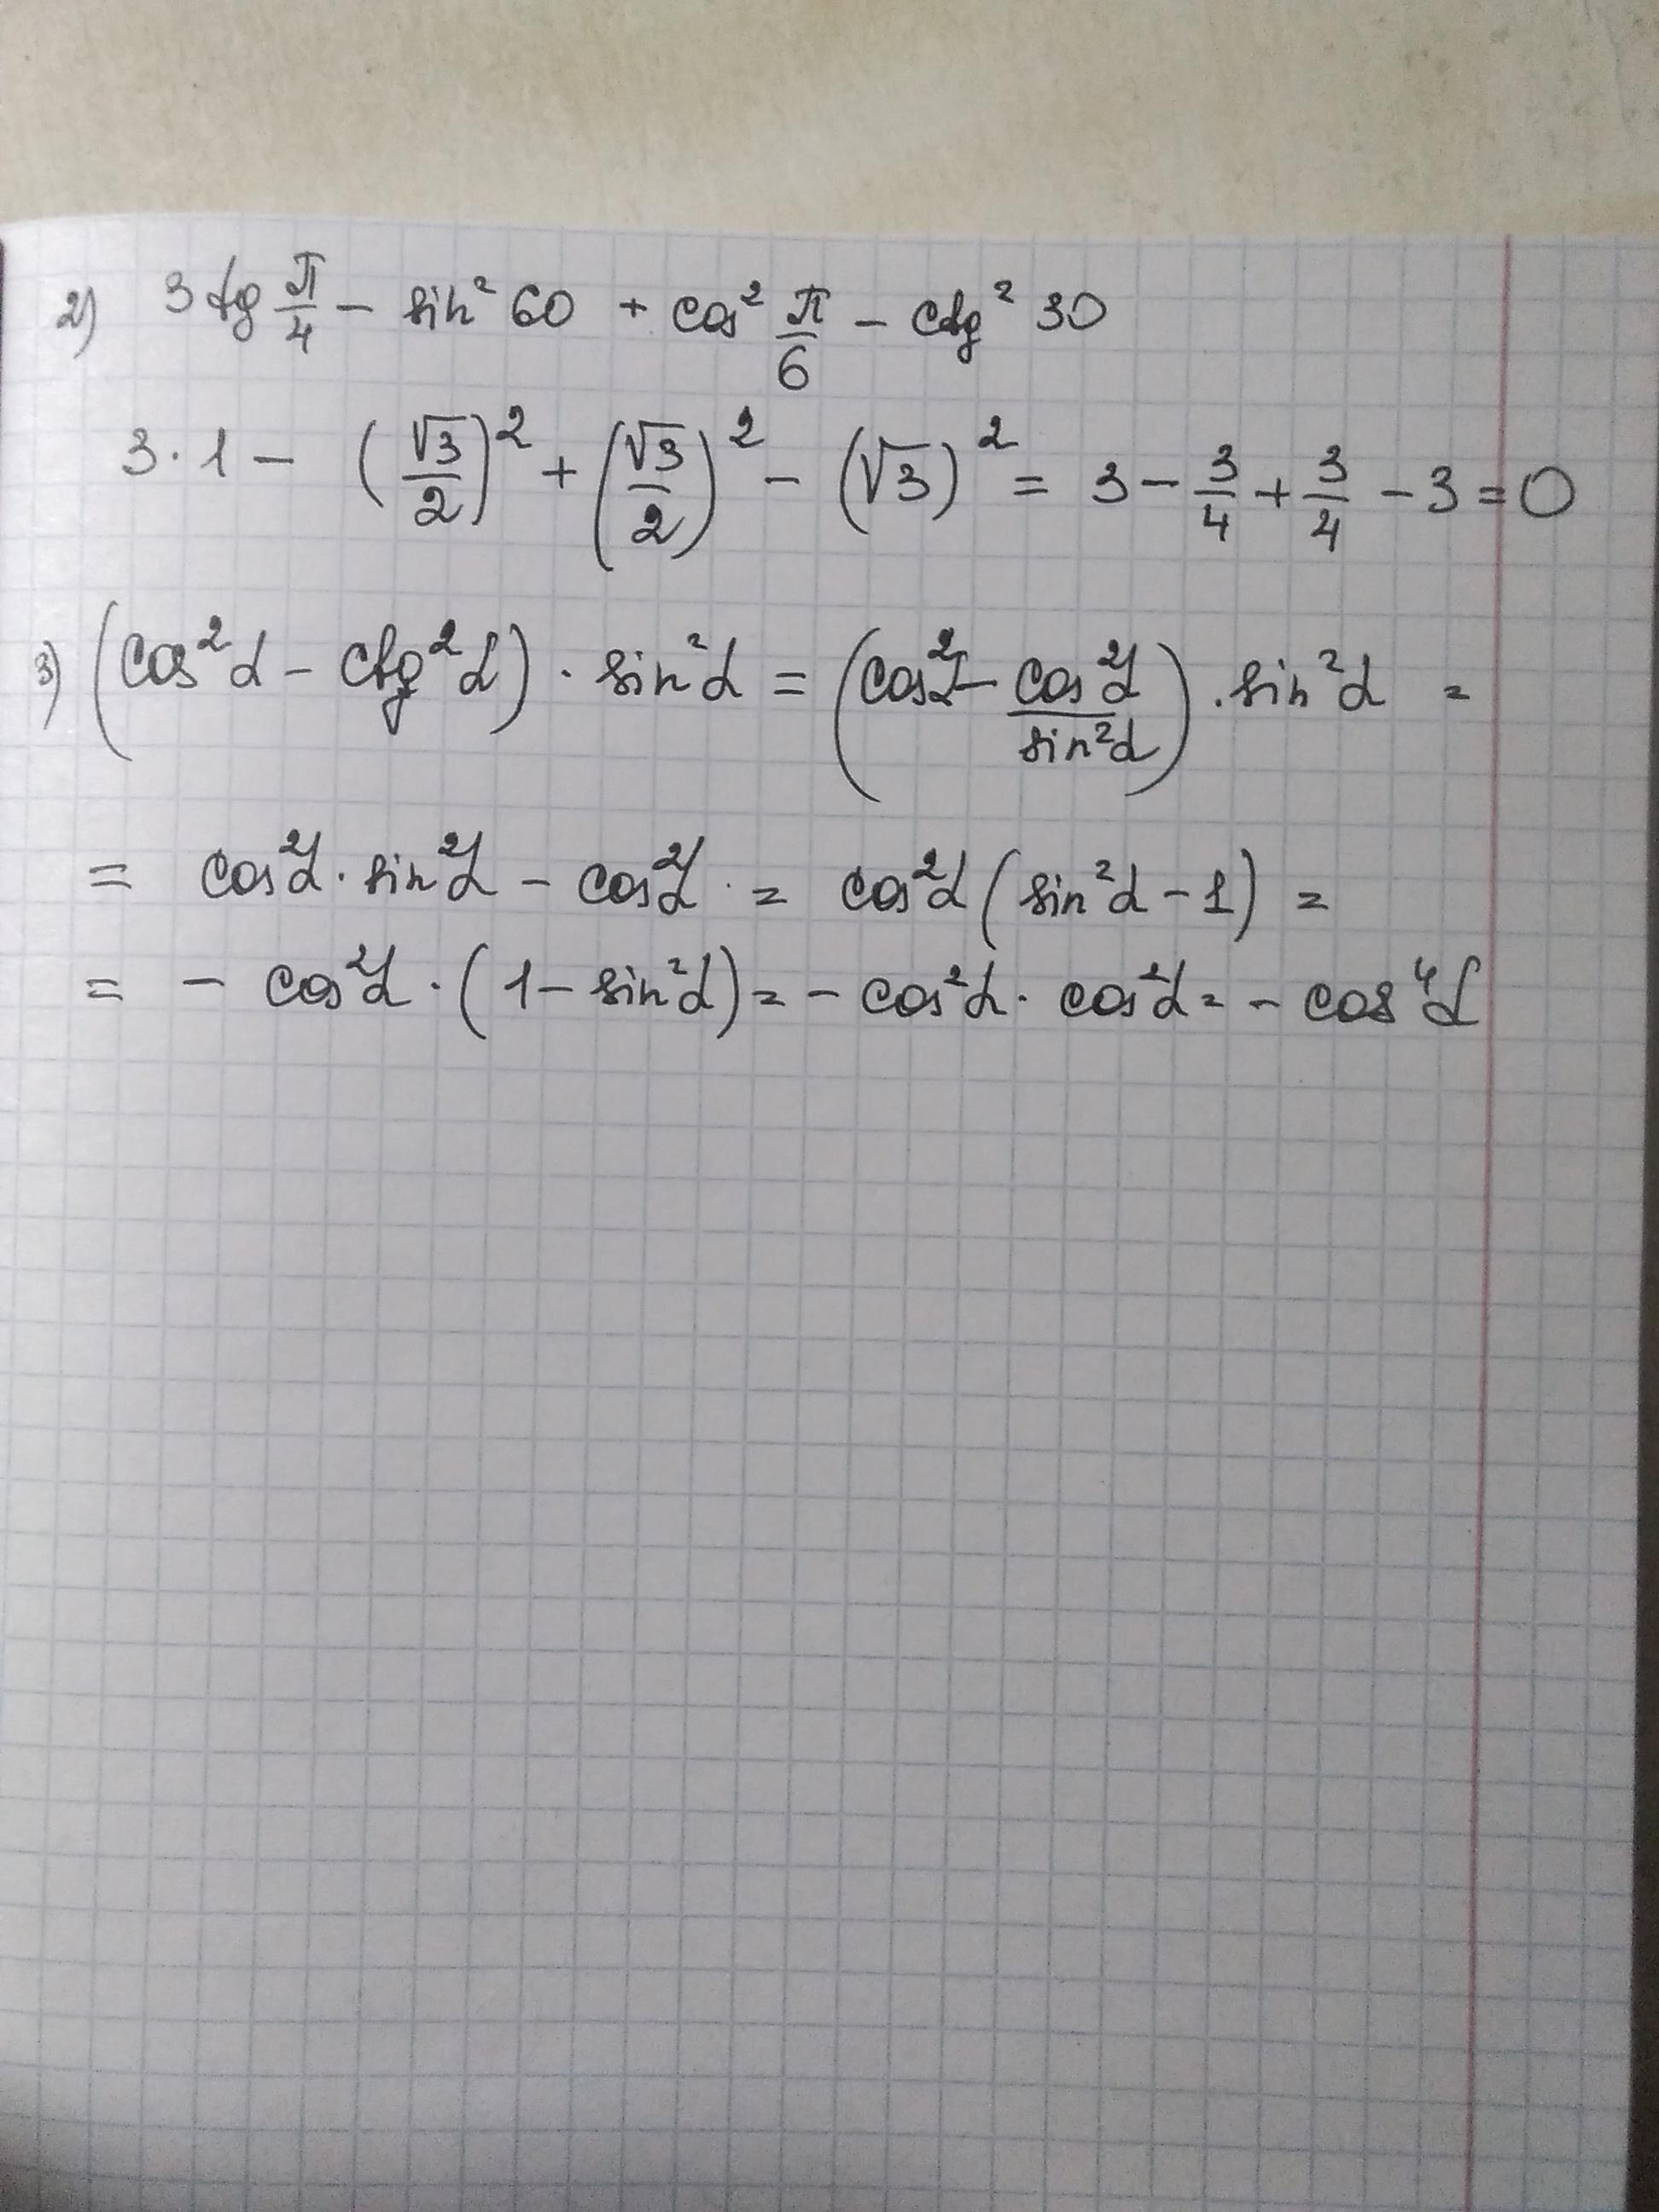 2) 3 tg π/4 − sin² 60 + cos² π/6 − ctg² 30
3·1 − (√3/2)² + (√3/2)² − (√3)² = 3 − 3/4 + 3/4 − 3 = 0
3) (cos²α − ctg²α) · sin²α = (cos²α − cos²α/sin²α) · sin²α =
= cos²α · sin²α − cos²α = cos²α (sin²α − 1) =
= − cos²α · (1 − sin²α) = − cos²α · cos²α = − cos⁴α